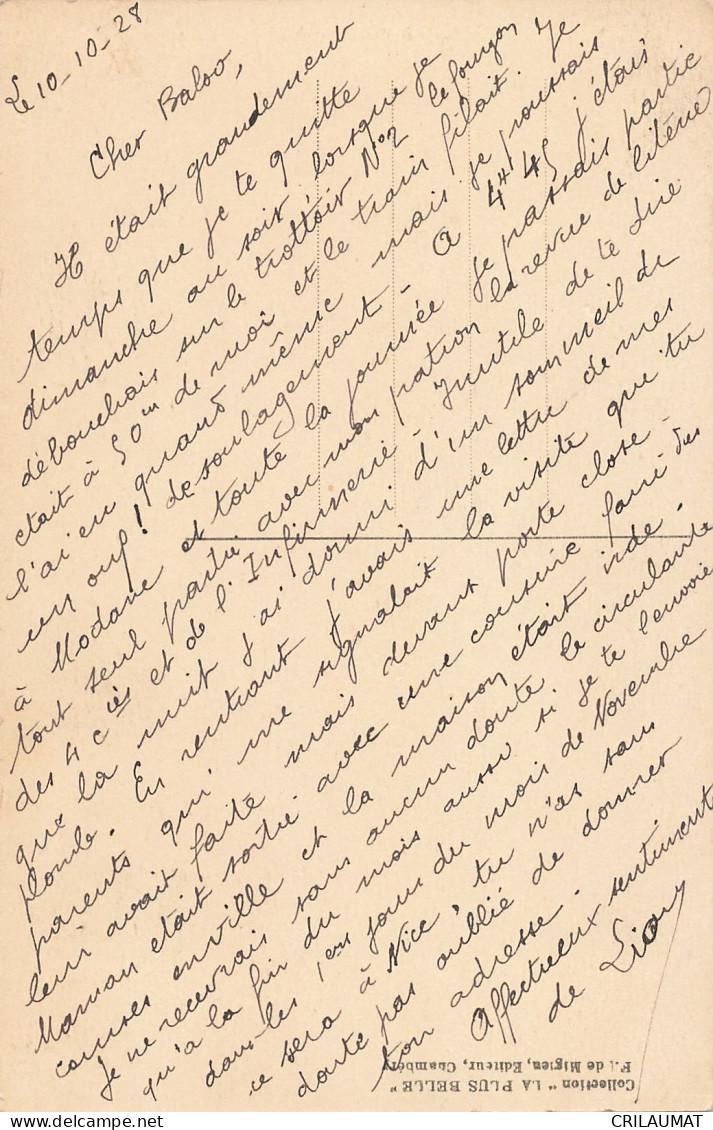 Le 10-10-28
Cher Baloo,
Il était grandement
temps que je te quitte
dimanche au soir, lorsque je
débouchais sur le trottoir N°2 le fourgon
était à 50m de moi et le train filait. Je
l'ai eu quand même mais je poussais
un ouf! de soulagement - A 4h45 j'étais
à Modane et toute la journée je passais partie
tout seul partie avec mon patron la revue de literie
des 4 Cies et de l'Infirmerie - Inutile de te dire
que la nuit j'ai dormi d'un sommeil de
plomb. En rentrant j'avais une lettre de mes
parents qui me signalait la visite que tu
leur avait faite mais devant porte close -
Maman était sortie avec une cousine faire des
courses en ville et la maison était vide.
Je ne recevrais sans aucun doute la circulante
qu'à la fin du mois aussi si je te l'envoie
dans les 1ers jours du mois de Novembre
ce sera à Nice, tu n'as sans
doute pas oublié de donner
ton adresse.
Affectueux sentiments
de Liony
Collection "LA PLUS BELLE"
F. de Migieu, Editeur, Chambéry
CRILAUMAT